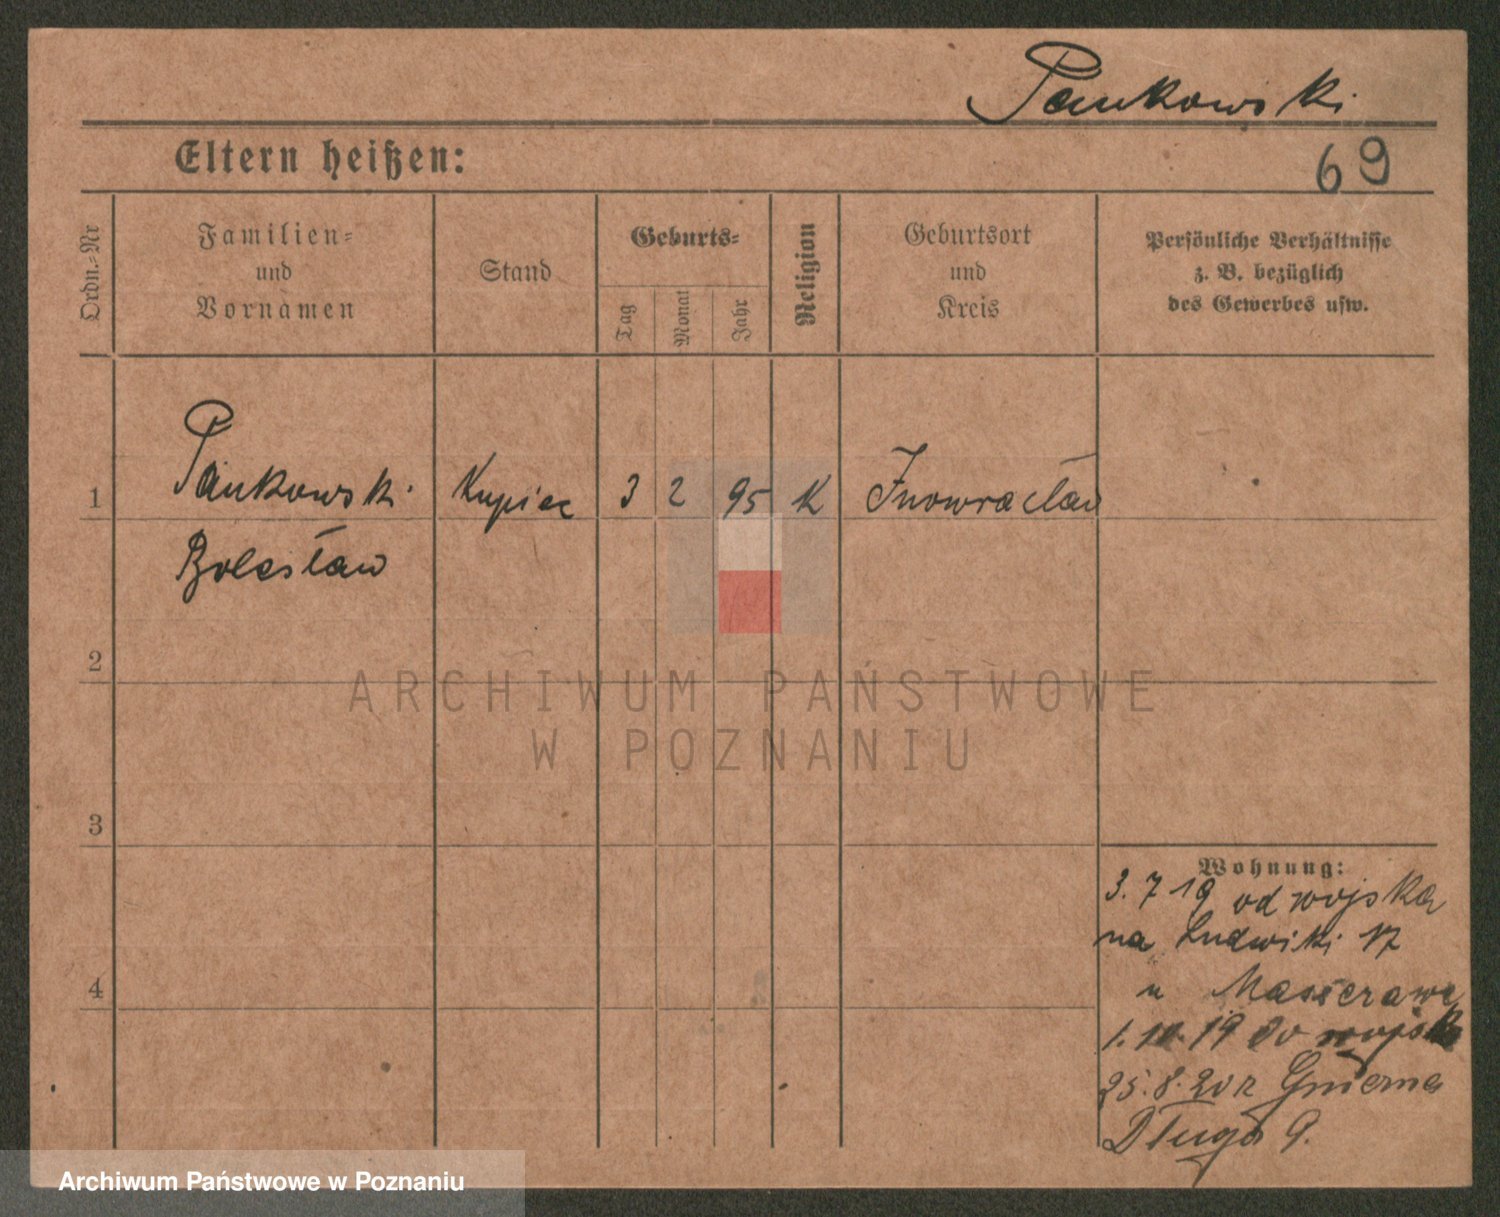 Pankowski
Eltern heißen:
69
Ordn.-Nr
Familien-
und
Vornamen
Stand
Geburts-
Tag
Monat
Jahr
Religion
Geburtsort
und
Kreis
Persönliche Verhältnisse
z. B. bezüglich
des Gewerbes usw.
1
Pankowski
Kupiec
3
2
95
K
Inowracław
Bolesław
2
ARCHIWUM PAŃSTWOWE
W POZNANIU
3
Wohnung:
3. 7 19 od wojska
na Ludwiki 17
u
4
1. 10. 19 do
25. 8. 20 z
Długa 9.
Archiwum Państwowe w Poznaniu